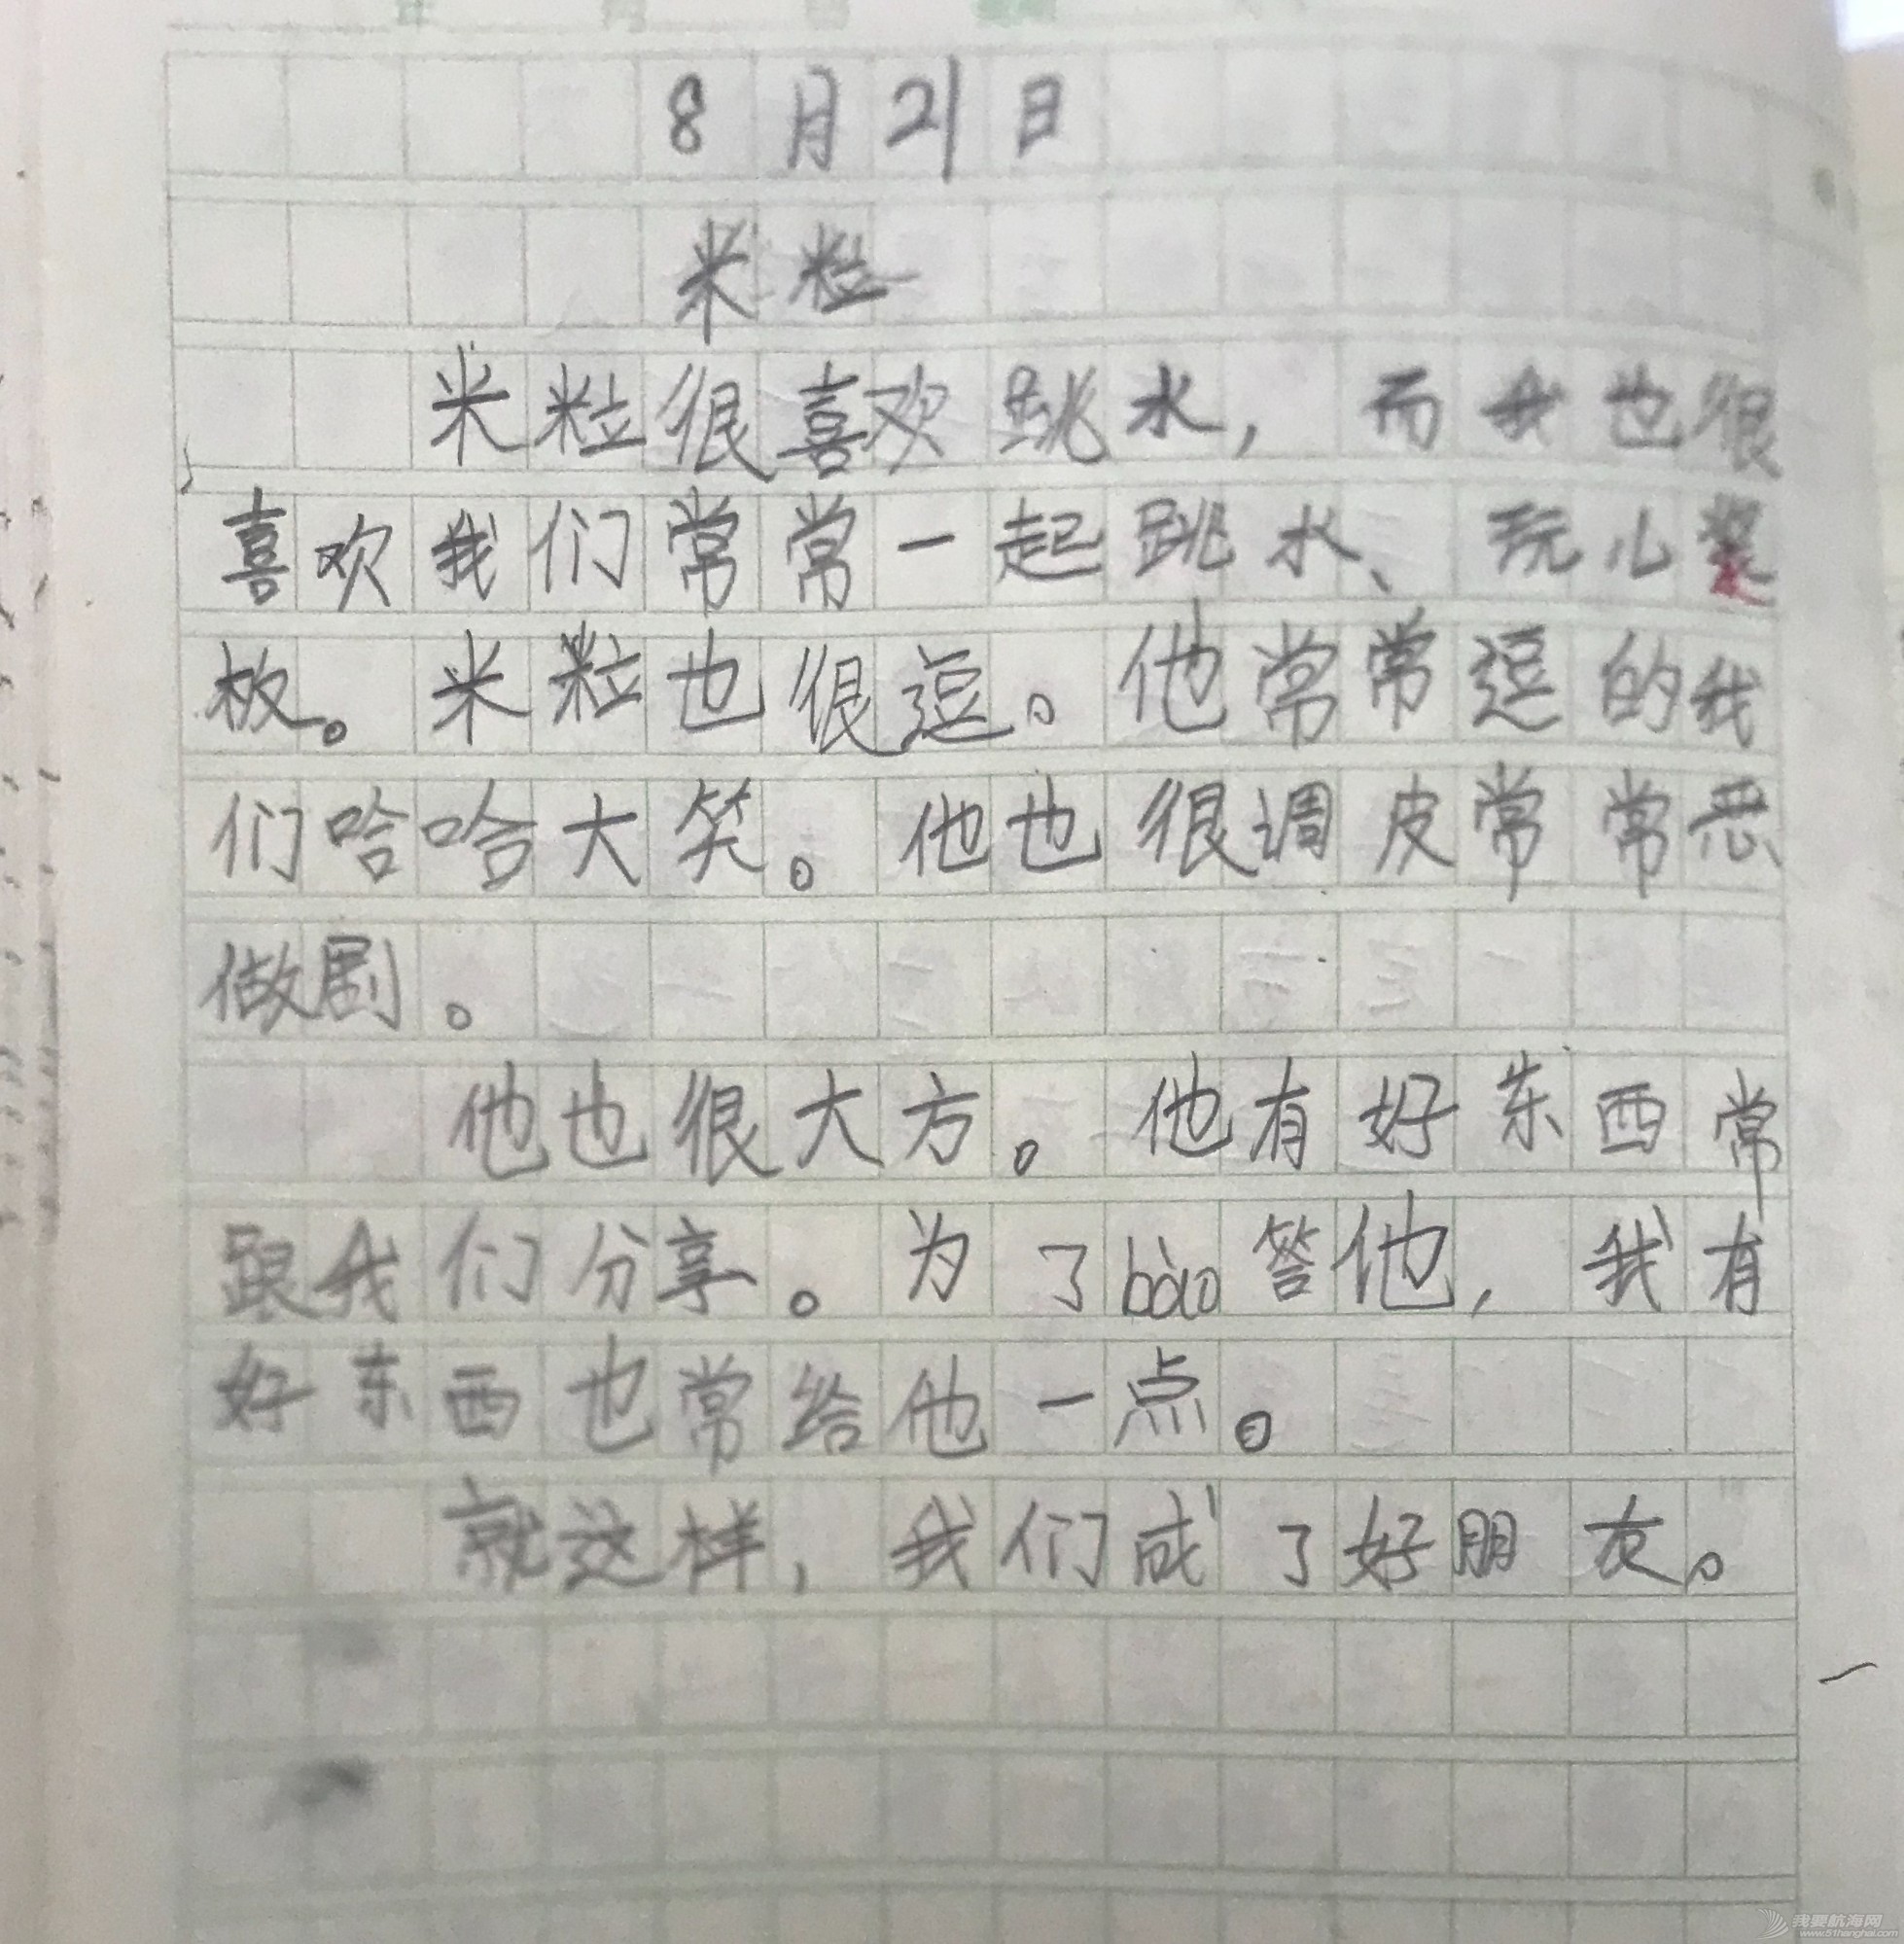 8月21日
米粒
米粒很喜欢跳水，而我也很
喜欢我们常常一起跳水、玩小桨
板。米粒也很逗。他常常逗的我
们哈哈大笑。他也很调皮常常恶
做剧。
他也很大方。他有好东西常
跟我们分享。为了bào答他，我有
好东西也常给他一点。
就这样，我们成了好朋友。
我要航海网
www.51hanghai.com